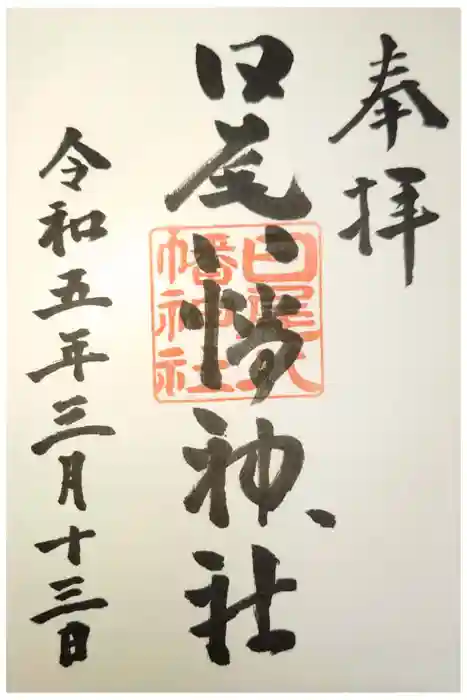 奉拝
日尾八幡神社
日尾八幡神社
令和五年三月十三日